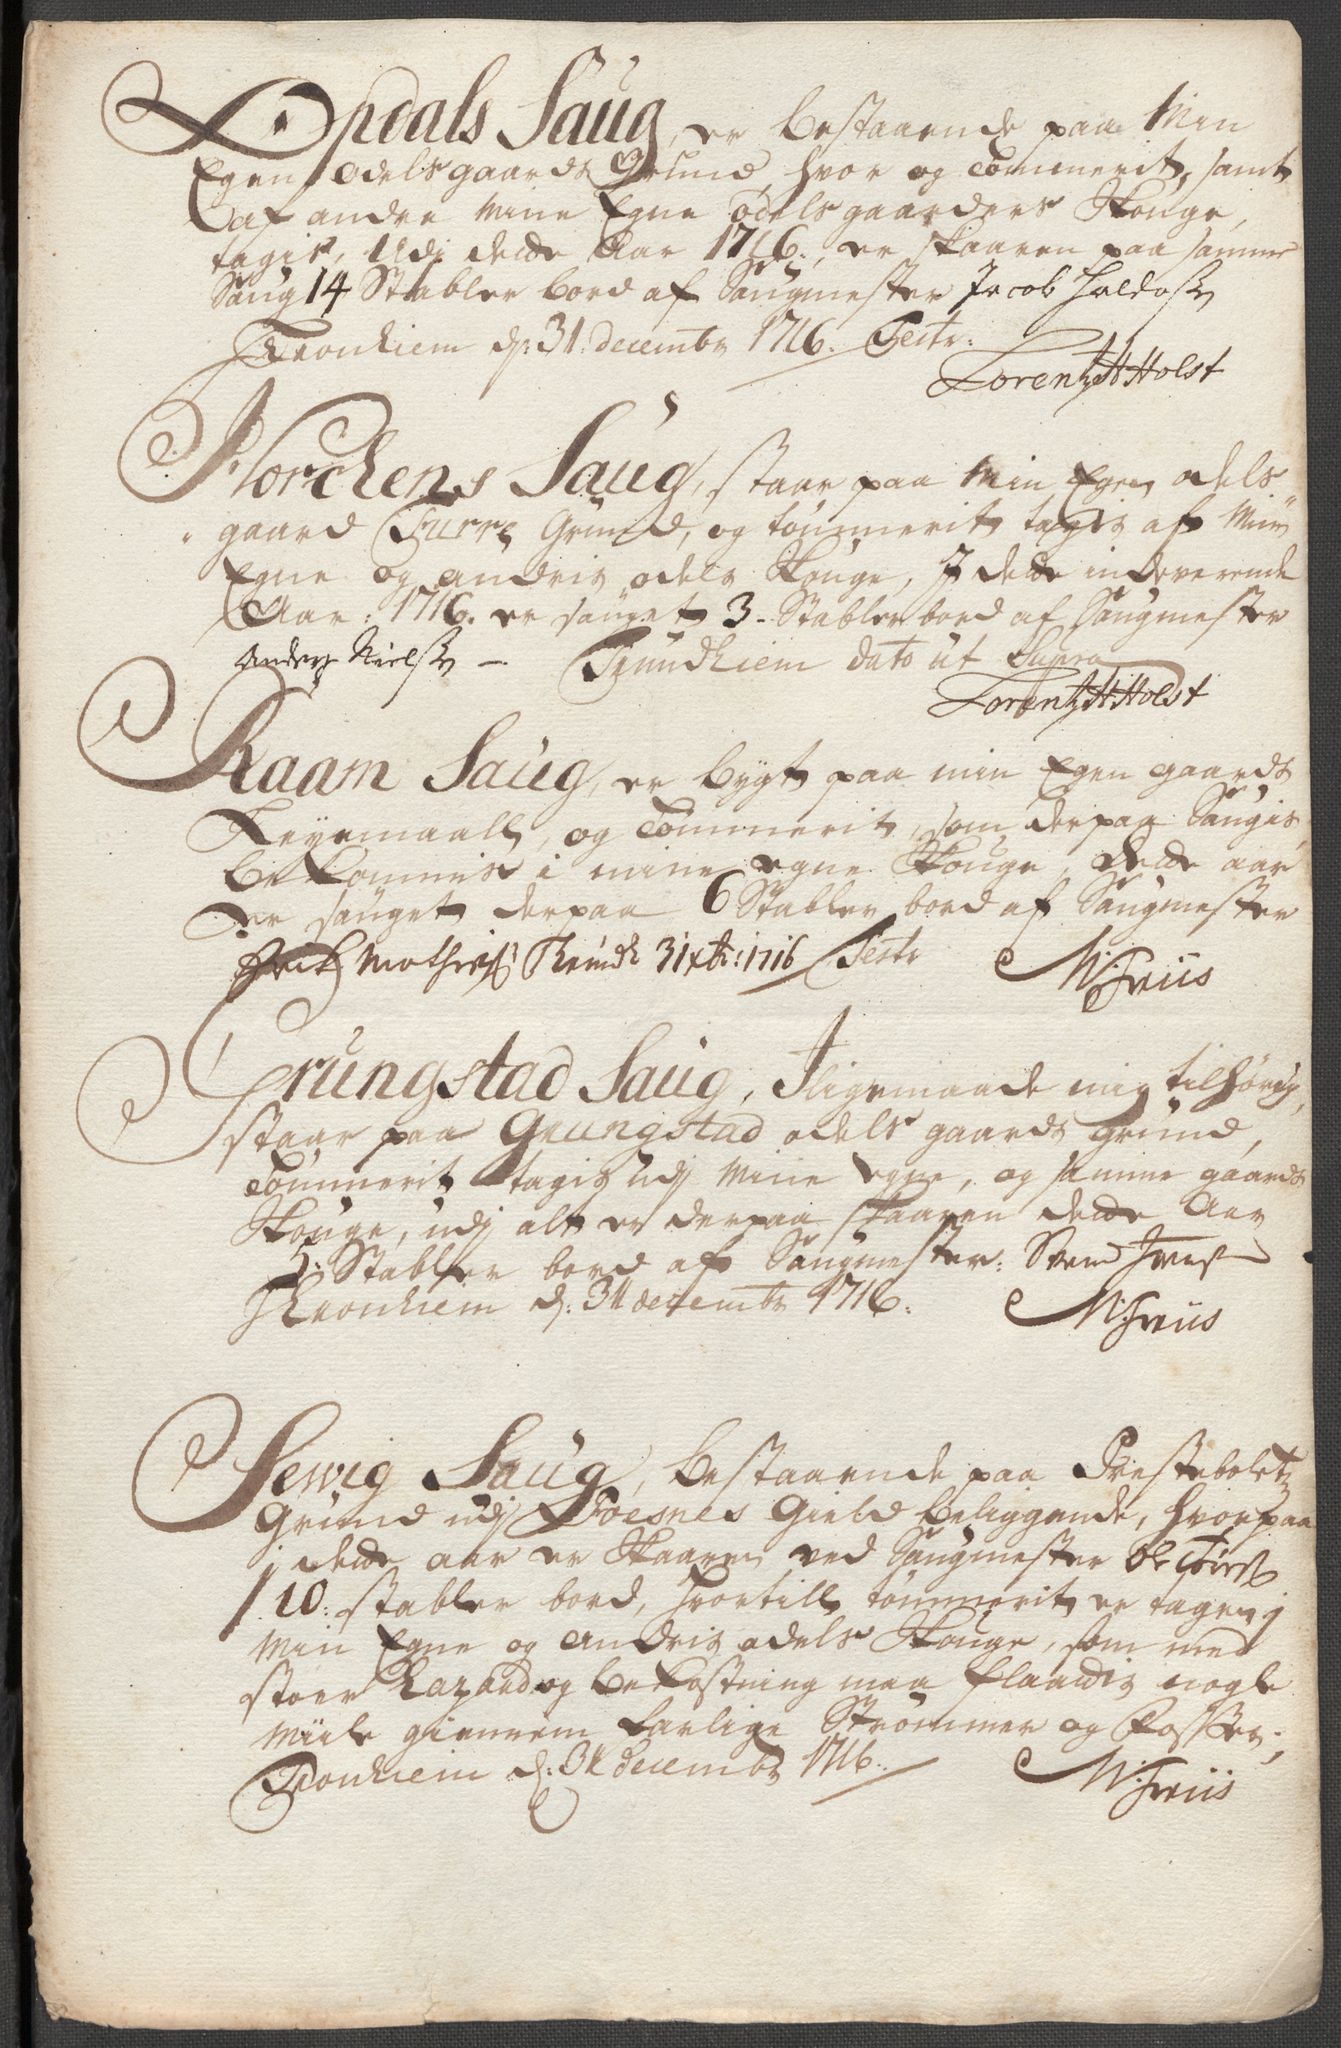 Opdals Saug, er bestaaende paa Min
Egen odels gaards Grund, hvor og Tømmerit, samt
af andre Mine Egne odels gaarders Skouge,
tagis, Udj dette Aar 1716, er skaaren paa samme
Saug 14 Stabler bord af Saugmester Jacob
Tronhiem d: 31 decembr 1716. Testr:
Lorentz H Holst
Norckens Saug, staar paa Min Egen odels
gaard Grund, og tømmerit tagis af Min
Egne og andris odels Skouge, I dette indeverende
Aar: 1716. er sauget 3 Stabler bord af Saugmester
Anders Nielss – Trundhiem dato ut Supra
Lorentz H Holst
Raam Saug, er bygt paa min Egen gaards
og Tømmerit, som derpaa Saugis,
bekommis i mine egne Skouge, dette aar
er sauget derpaa 6 Stabler bord af Saugmester
Erich 31 xbr: 1716 Testr
M: Friis
Grungstad Saug, Iligemaade mig tilhørig,
staar paa Grungstad odels gaards grund,
Tømmerit tagis udj Mine egne, og samme gaards
Skouge, udj alt er derpaa skaaren dette Aar
5: Stabler bord af Saugmester: Sven
Thronhiem d: 31 decembr 1716.
M: Friis
Sewig Saug, bestaaende paa Prestebolets
Grund udj Foesnes Gield beliggende, hvorpaa
j dette aar er Skaaren ved Saugmester Ole
10: stabler bord, hvortill tømmerit er tagen j
Min Egne og andris odels Skouge, som med
stoer Hazard og bekostning maa flaadis nogle
Miile giennem farlige Strømmer og Fosser.,
Tronhiem d: 31 decembr 1716.
M: Friis